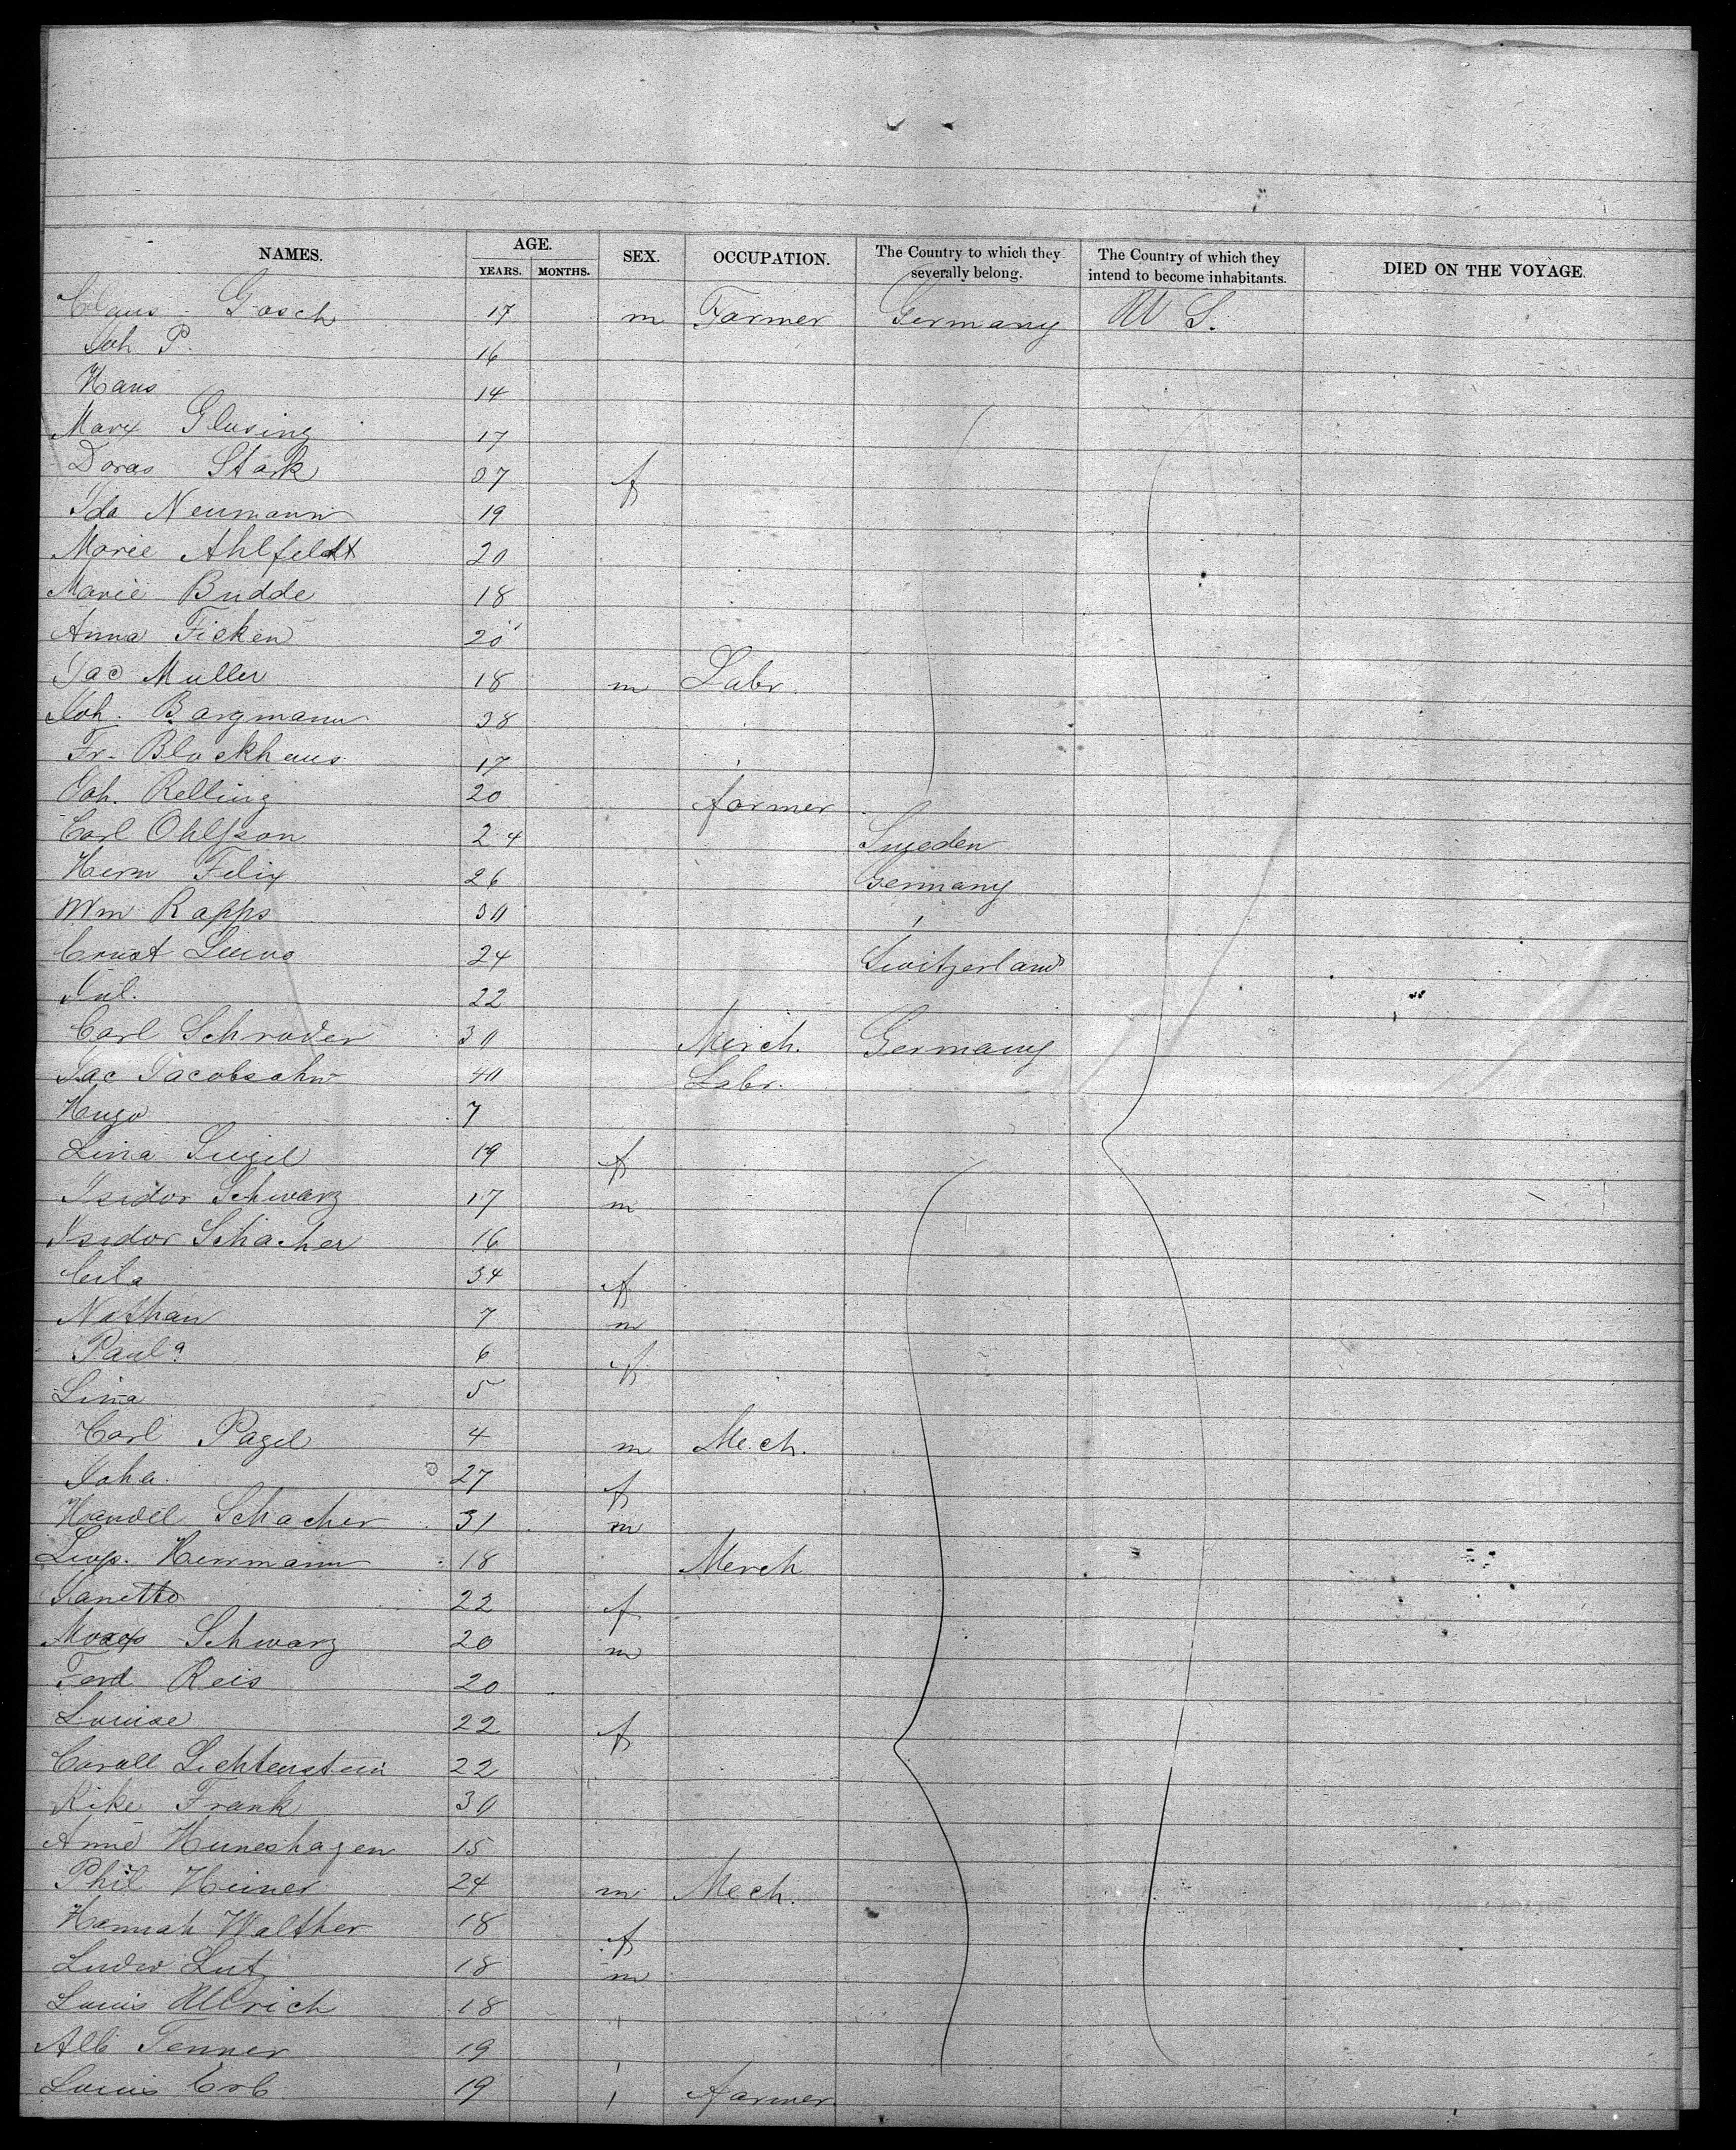 NAMES. AGE. SEX. OCCUPATION. The Country to which they severally belong. The Country of which they intend to become inhabitants. DIED ON THE VOYAGE.
YEARS. MONTHS.
Claus Gosch 17 m Farmer Germany U S.
Joh P. 16
Hans 14
Marx Glusing 17
Doras Stark 37 f
Ida Neumann 19
Marie Ahlfeldt 20
Marie Budde 18
Anna Ficken 20
Jac Muller 18 m Labr.
Joh. Bargmann 38
Fr. Blockhaus 17
Joh. Relling 20 farmer
Carl Ohlsson 24 Sweden
Herm Felix 26 Germany
Wm Rapps 30
Ernst 24 Switzerland
Jul. 22
Carl Schroder 30 Merch. Germany
Jac Jacobsohn 40 Labr.
Hugo 7
Lina Siegel 19 f
Isidor Schwarz 17 m
Isidor Schacher 16
34 f
Nathan 7 m
Paula 6 f
Lina 5
Carl Pagel 4 m Mech.
Joha. 27 f
Handel Schacher 31 m
Leop. Herrmann 18 Merch
Janette 22 f
Schwarz 20 m
Ferd Reis 20
Louise 22 f
Lichtenstein 22
Rike Frank 30
Anne Huneshagen 15
Phil Heiner 24 m Mech.
Hannah Walther 18 f
Ludw Lutz 18 m
Louis Ullrich 18
Alb Tenner 19
Louis Erb 19 farmer